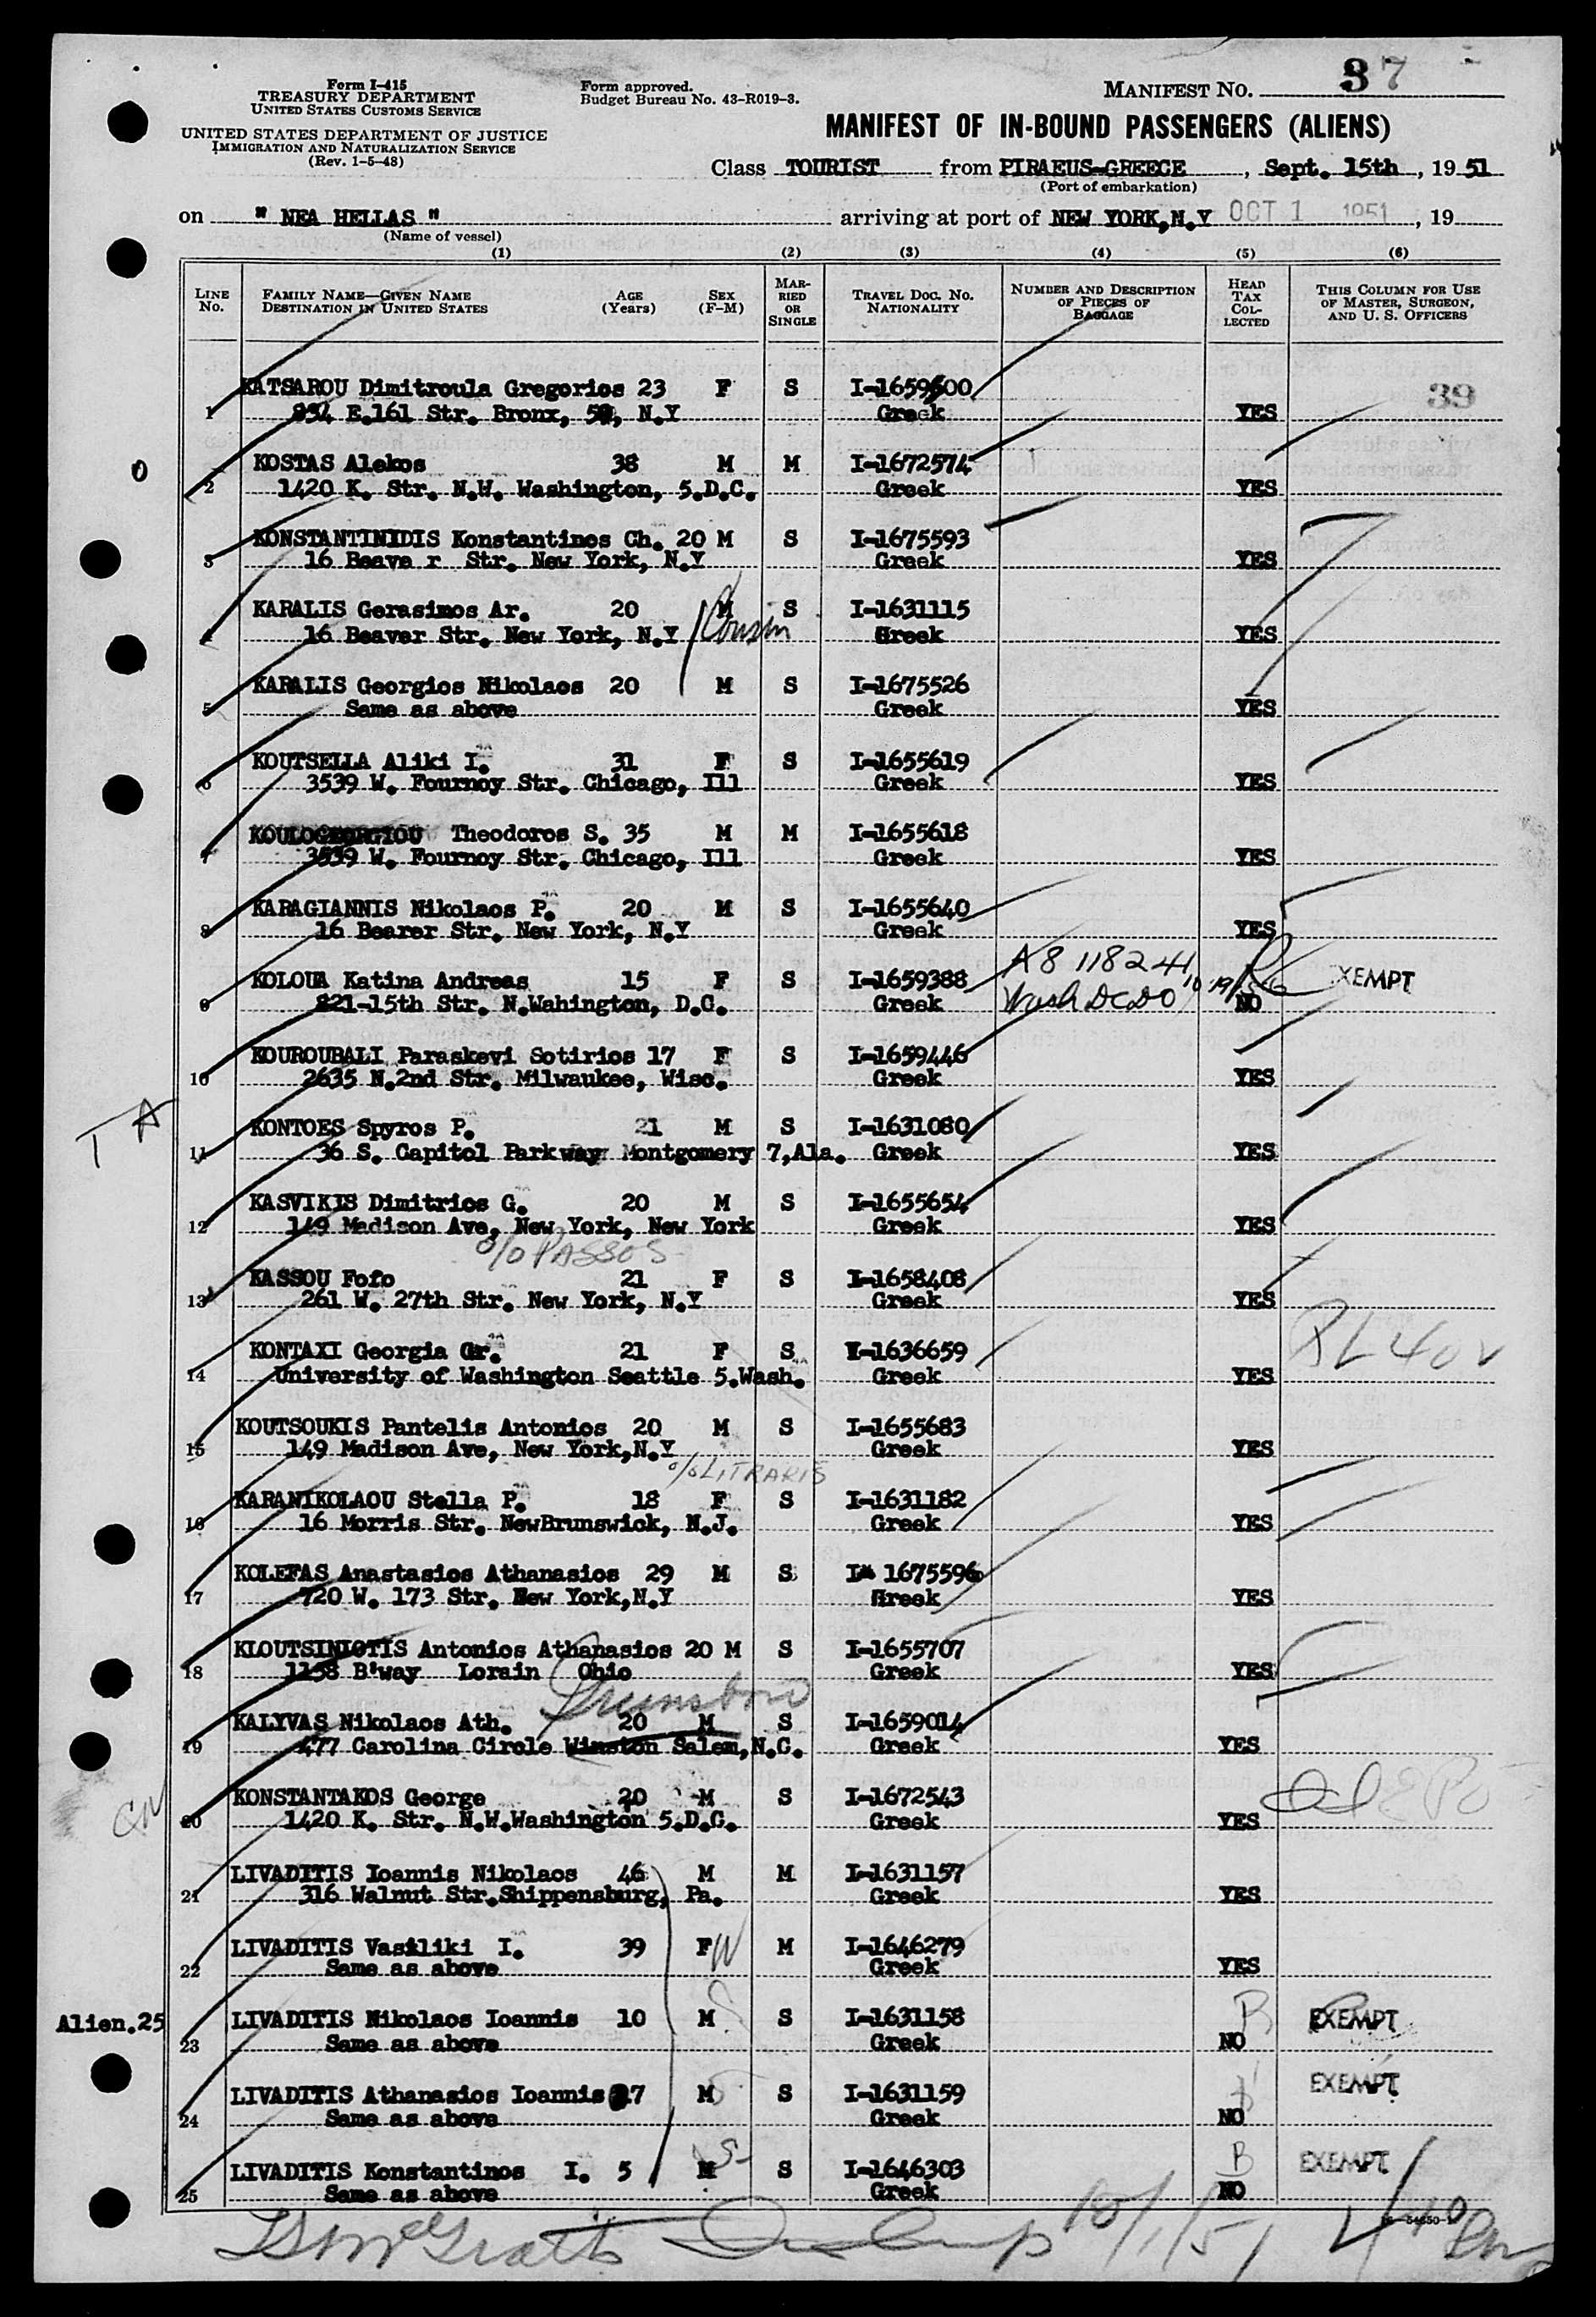 Form I-415
TREASURY DEPARTMENT
UNITED STATES CUSTOMS SERVICE
UNITED STATES DEPARTMENT OF JUSTICE
IMMIGRATION AND NATURALIZATION SERVICE
(Rev. 1-5-48)
Form approved.
Budget Bureau No. 43-R019-3.
MANIFEST NO. 37
MANIFEST OF IN-BOUND PASSENGERS (ALIENS)
Class TOURIST from PIRAEUS-GREECE, Sept. 15th, 19 51
(Port of embarkation)
on " NEA HELLAS " arriving at port of NEW YORK,N.Y OCT 1 1951, 19
(Name of vessel)
(1) (2) (3) (4) (5) (6)
LINE No. FAMILY NAME—GIVEN NAME DESTINATION IN UNITED STATES AGE (Years) SEX (F-M) MARRIED OR SINGLE TRAVEL DOC. NO. NATIONALITY NUMBER AND DESCRIPTION OF PIECES OF BAGGAGE HEAD TAX COLLECTED THIS COLUMN FOR USE OF MASTER, SURGEON, AND U. S. OFFICERS
KATSAROU Dimitroula Gregorios 23 F S I-1659500 39
1 834 E.161 Str. Bronx, N.Y Greek YES
0 KOSTAS Alekos 38 M M I-1672574
2 1420 K. Str. N.W. Washington, 5.D.C. Greek YES
KONSTANTINIDIS Konstantinos Ch. 20 M S I-1675593
3 16 Beave r Str. New York, N.Y Greek YES
KARALIS Gerasimos Ar. 20 M S I-1631115
4 16 Beaver Str. New York, N.Y Cousin Greek YES
KARALIS Georgios Nikolaos 20 M S I-1675526
5 Same as above Greek YES
KOUTSELLA Aliki I. 31 F S I-1655619
6 3539 W. Fournoy Str. Chicago, Ill Greek YES
KOULOGEORGIOU Theodoros S. 35 M M I-1655618
7 3539 W. Fournoy Str. Chicago, Ill Greek YES
KARAGIANNIS Nikolaos P. 20 M S I-1655640
8 16 Bearer Str. New York, N.Y Greek YES
KOLOUA Katina Andreas 15 F S I-1659388 A8 118241 EXEMPT
9 821-15th Str. N.Wahington, D.C. Greek Wash DCDO NO
KOUROUBALI Paraskevi Sotirios 17 F S I-1659446
10 2635 N.2nd Str. Milwaukee, Wisc. Greek YES
T A KONTOES Spyros P. 21 M S I-1631080
11 36 S. Capitol Parkway Montgomery 7,Ala. Greek YES
KASVIKIS Dimitrios G. 20 M S I-1655654
12 149 Madison Ave, New York, New York Greek YES
c/o PASSOS
KASSOU Fofo 21 F S I-1658408
13 261 W. 27th Str. New York, N.Y Greek YES
KONTAXI Georgia Gr. 21 F S I-1636659
14 University of Washington Seattle 5.Wash. Greek YES
KOUTSOUKIS Pantelis Antonios 20 M S I-1655683
15 149 Madison Ave, New York,N.Y Greek YES
c/o LITRARIS
KARANIKOLAOU Stella P. 18 F S I-1631182
16 16 Morris Str. NewBrunswick, N.J. Greek YES
KOLEFAS Anastasios Athanasios 29 M S I- 1675596
17 720 W. 173 Str. New York,N.Y Greek YES
KLOUTSINIOTIS Antonios Athanasios 20 M S I-1655707
18 1158 B'way Lorain Ohio Greek YES
Greensboro
KALYVAS Nikolaos Ath. 20 M S I-1659014
19 477 Carolina Circle Winston Salem,N.C. Greek YES
KONSTANTAKOS George 20 M S I-1672543
20 1420 K. Str. N.W.Washington 5.D.C. Greek YES
LIVADITIS Ioannis Nikolaos 46 M M I-1631157
21 316 Walnut Str.Shippensburg, Pa. Greek YES
LIVADITIS Vasiliki I. 39 F W M I-1646279
22 Same as above Greek YES
Alien.25 LIVADITIS Nikolaos Ioannis 10 M S I-1631158 B EXEMPT
23 Same as above Greek NO
LIVADITIS Athanasios Ioannis 7 M S S I-1631159 EXEMPT
24 Same as above Greek NO
LIVADITIS Konstantinos I. 5 M S S I-1646303 B EXEMPT
25 Same as above Greek NO
10/1/51